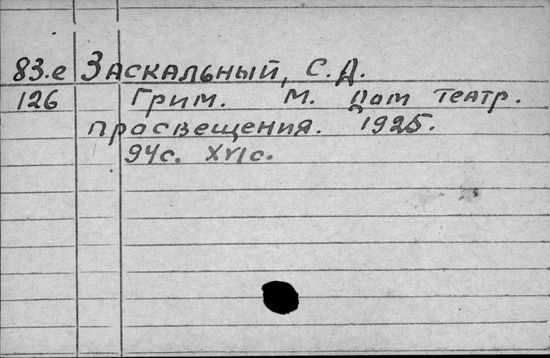 83.е Заскальный, С.Д.
126 Грим. М. Дом театр.
просвещения. 1925.
94с. XVIс.